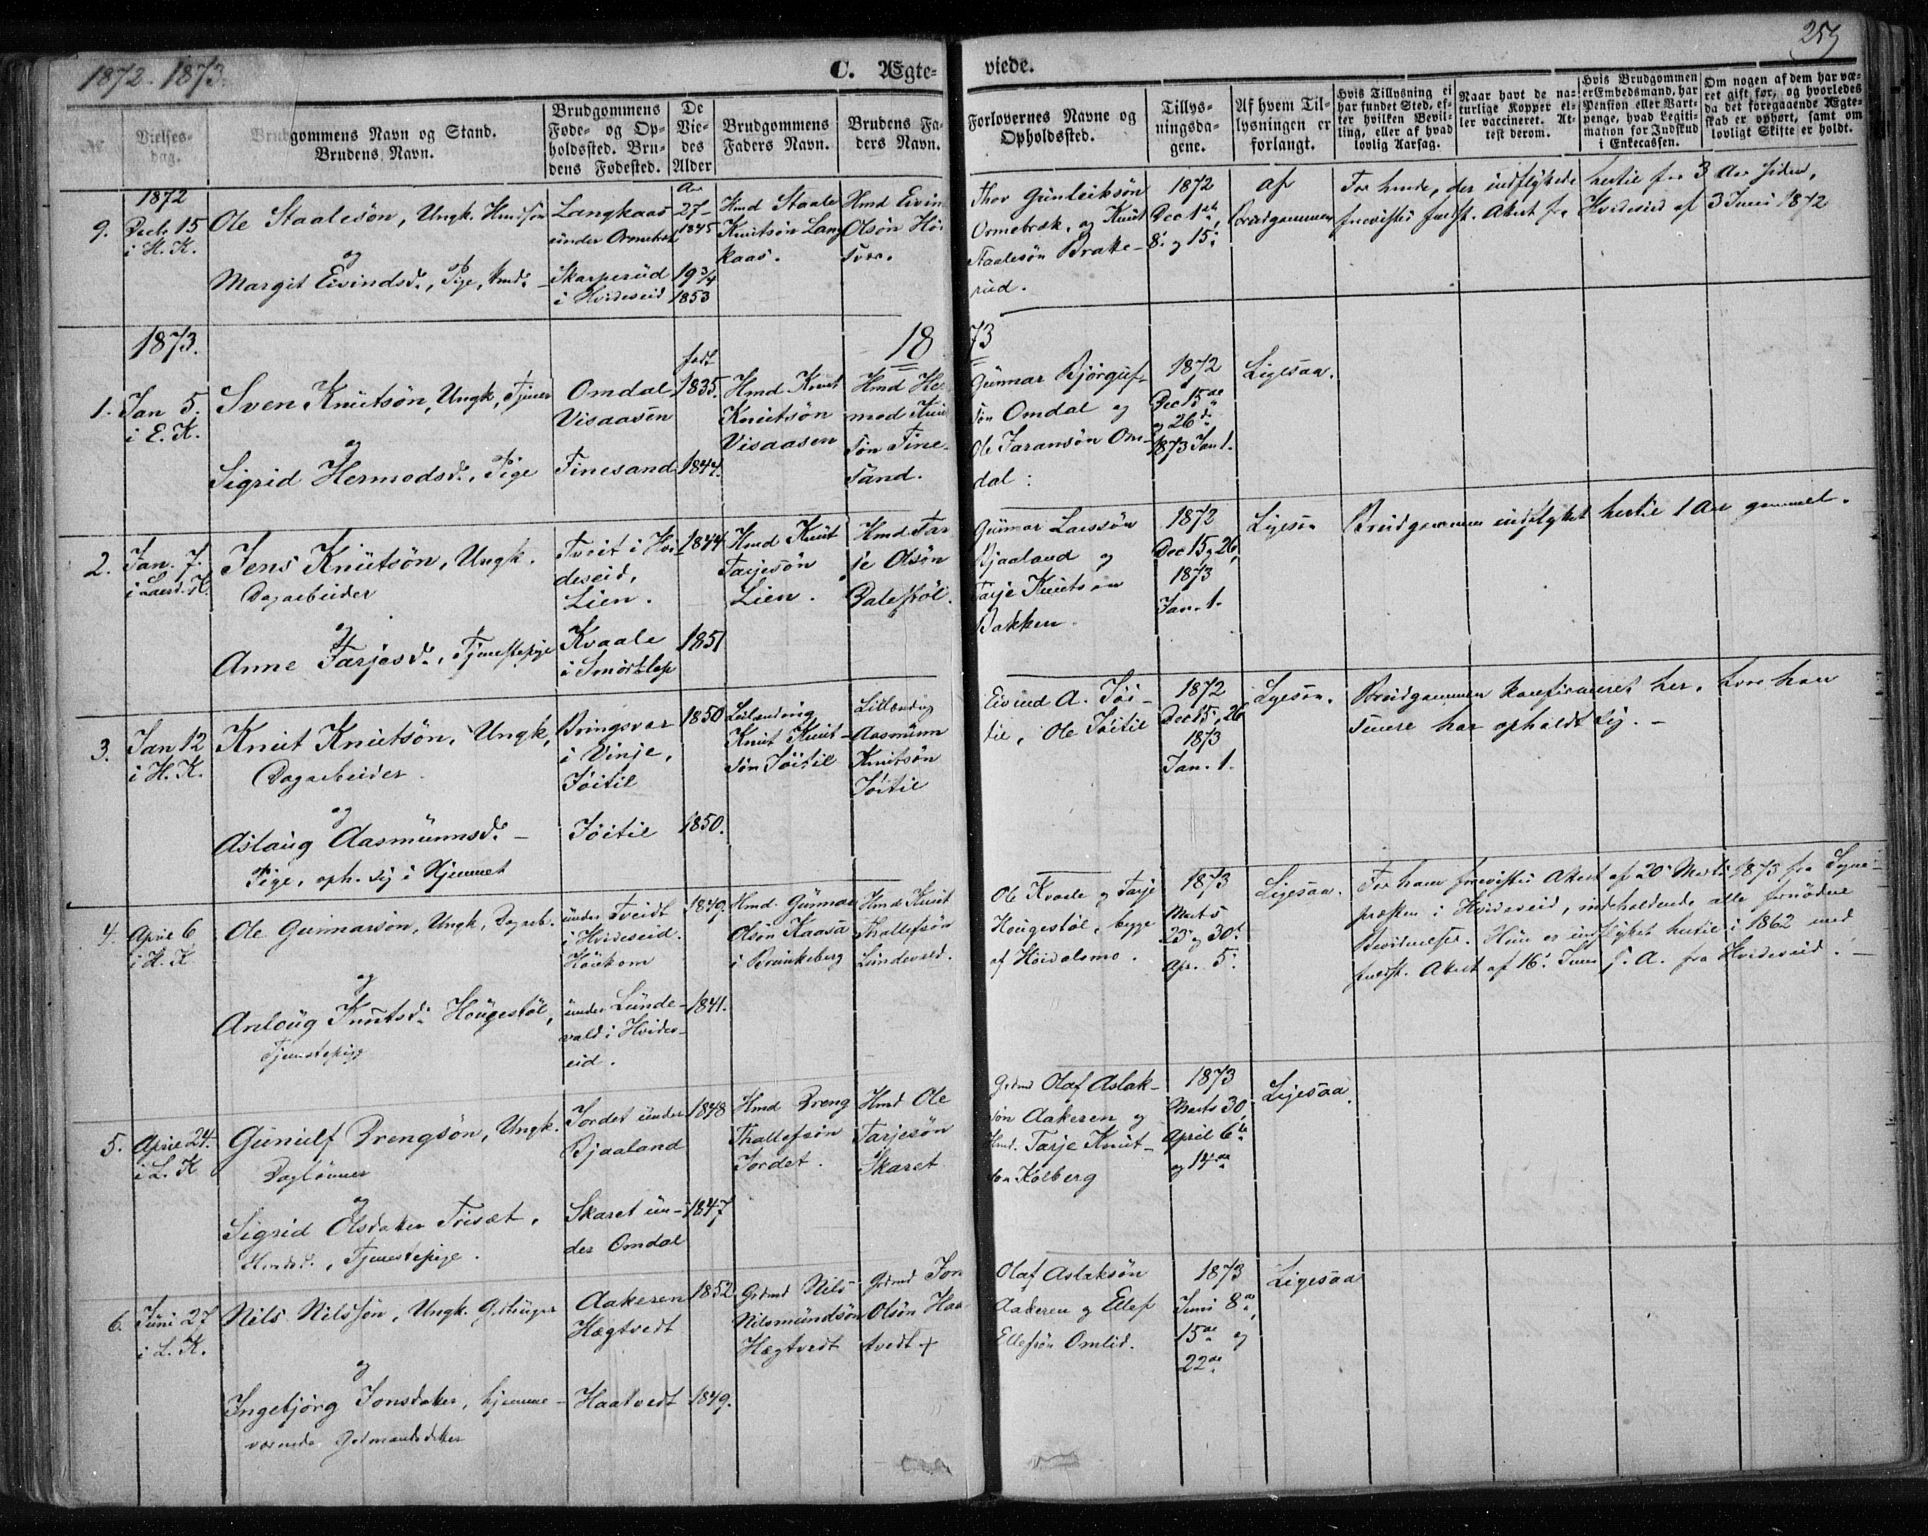 1872. 1873.
C. Ægte-
viede.
259
No.
Vielses-
dag.
Brudgommens Navn og Stand.
Brudens Navn.
Brudgommens
Føde- og Op-
holdssted. Bru-
dens Fødested.
De
Vie-
des
Alder
Brudgommens
Faders Navn.
Brudens Fa-
ders Navn.
Forlovernes Navne og
Opholdssted.
Tillys-
ningsda-
gene.
Af hvem Til-
lysningen er
forlangt.
Hvis Tillysning ei
har fundet Sted, ef-
ter hvilken Bevil-
ling, eller af hvad
lovlig Aarsag.
Naar havt de na-
turlige Kopper el-
ler vaccineret. At-
test derom.
Hvis Brudgommen
er Embedsmand, har
Pension eller Vart-
penge, hvad Legiti-
mation for Indskud
i Enkecassen.
Om nogen af dem har væ-
ret gift før, og hvorledes
da det foregaaende Ægte-
skab er ophørt, samt om
lovligt Skifte er holdt.
9.
1872
Decb. 15
i H. K.
Ole Staalesøn, Ungk. Hmdsøn
og
Margit Eivindsd., Pige, Hmd.
Langkaas
under Ormebrek
Skarperud
i Hvideseid
Aar
27-
1845
19 3/4
1853
Hmd Staale
Knutsøn Lang
kaas.
Hmd Eivin
Olsøn
Thov Gunleiksøn
Ormebræk, og Knut
Staalesøn Brake-
rud.
1872
Dec 1ste
8. og 15.
af
Brudgommen
For hende, der indflyttede hertil for 3 Aar siden,
forevistes fuldst. Attest fra Hvideseid af 3 Juni 1872
1873.
18
73
1.
Jan 5.
i E. K.
Sven Knutsøn, Ungk, Tjener
og
Sigrid Hermodsd., Pige
Omdal
Visaasen
Finesand
født
1835.
1844.
Hmd Knut
Knutsøn
Visaasen
Hmd Her
mod Knut
søn Fine-
sand.
Gunnar Bjørguf-
søn Omdal og
Ole Faransøn Om-
dal:
1872
Dec 15de
og 26de
1873 Jan 1.
Ligesaa.
2.
Jan. 7.
Jens Knutsøn, Ungk.
Dagarbeider
og
Anne Tarjesd., Tjenestepige
Tveit i Hvi
deseid,
Lien.
Kvaale
i Smørklep
1844
1851
Hmd Knut
Tarjesøn
Lien.
Hmd Tar
je Olsøn
Dalestøl.
Gunnar Larssøn
Bjaaland og
Tarje Knutsøn
Bakken.
1872
Dec 15 og 26,
1873
Jan. 1.
Ligesaa
Brudgommen indflyttet hertil 1 Aar gammel.
3.
Jan 12
i H. K.
Knut Knutsøn, Ungk,
Dagarbeider.
og
Aslaug Aasmunnsd.
Pige, oph. sig i Hjemmet
Bringsvor
i Vinje,
Jøitil
Jøitil
1850
1850.
Leilending
Knut Knut-
søn Jøitil
Leilending
Aasmunn
Knutsøn
Jøitil
Eivind A. Jøi-
til, Ole Jøitil
1872
Dec 15, 26
1873
Jan. 1.
Ligesaa.
Brudgommen konfirmeret her, hvor han
senere har opholdt sig.
4.
April 6
i H. K
Ole Gunnarsøn, Ungk, Dagarb.
og
Anlaug Knutsd. Haugestøl,
Tjenestepige
under Tveidt
i Hvideseid.
Høiekom
under Lunde-
vald i Hvides-
eid.
1849.
1841.
Hmd. Gunnar
Olsøn Kaasa
i Brunkeberg
Hmd Knut
Thallefsøn
Lundevald.
Ole Kvaale og Tarje
Haugestøl, begge
af Høidalsmo.
1873
Marts
23 og 30.
Apr. 5.
Ligesaa.
For ham forevistes Attest af 20. Marts 1873 fra Sogne-
præsten i Hvideseid, indeholdende alle fornødne
Bevidnelser. Hun er indflyttet hertil i 1862 med
fuldst. Attest af 16. Juni s. A. fra Hvideseid.
5.
April 24.
i L. K
Gunulf Drengsøn, Ungk.
Daglønner
og
Sigrid Olsdatter Trisæt,
Hmdsd., Tjenestepige.
Jordet under
Bjaaland
Skaret un-
der Omdal
1848
1847
Hmd Dreng
Thallefsøn
Jordet.
Hmd Ole
Tarjesøn
Skaret
Grdmd Olaf Aslak-
søn Aakeren og
Hmd. Tarje Knut-
søn Kolberg
1873
Marts 30,
April 6te
og 14de
Ligesaa
6.
Juni 27
i L. K.
Nils Nilssøn, Ungk. Gdbruger
og
Ingebjørg Jonsdatter, hjemme-
værende Gdmandsdatter
Aakeren
Hægtvedt
Haatvedt
1852.
1849.
Grdmd Nils
Nilsmundsøn
Hægtvedt
Grdmd Jon
Olsøn Haa-
tvedt +
Olaf Aslaksøn
Aakeren og Ellef
Ellefsøn Omlid.
1873
Juni 8de,
15de og
22de
Ligesaa